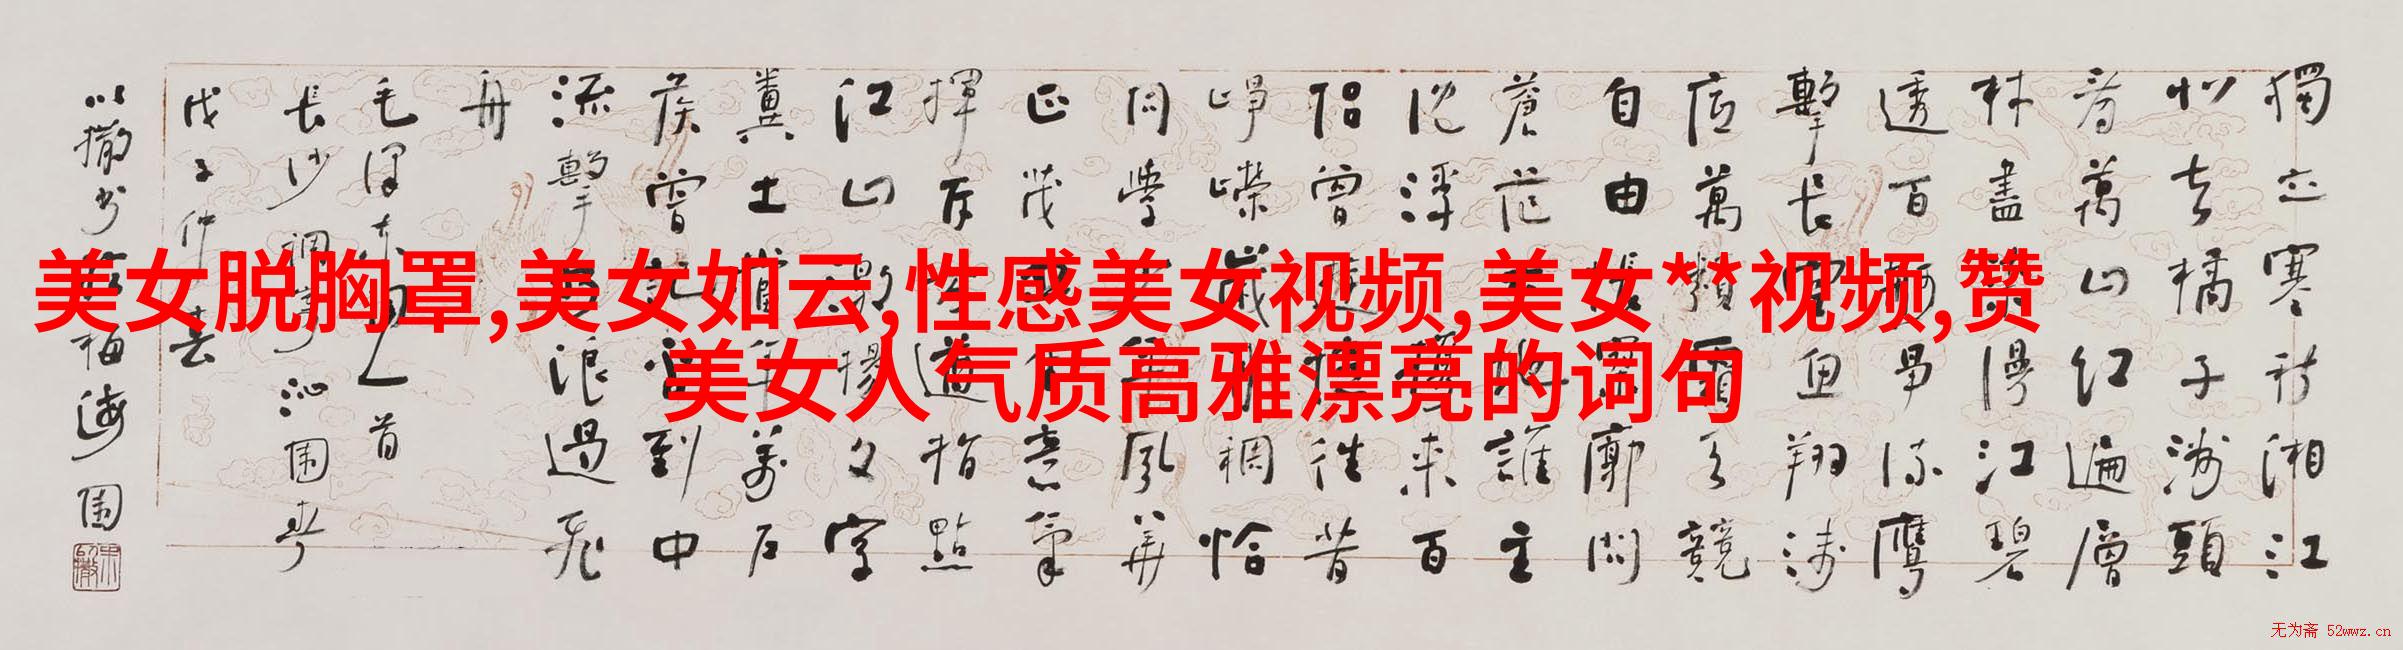 美女脱胸罩,美女如云,性感美女视频,美女**视频,赞
美女人气质高雅漂亮的词句
獨立寒秋湘江
北去橘子洲頭
看萬山紅遍層
林盡染漫江碧
透百舸爭流鷹
擊長空魚翔淺
底萬類霜天競
自由悵寥廓問
蒼茫大地誰主
沈浮攜來百
侣曾遊憶往昔
崢嶸歲月稠恰
同學少年風華
正茂書生意氣
揮斥方遒指點
江山激揚文字
糞土當年萬戶
侯曾記否到中
流擊水浪遏飛
舟
毛澤東首
長沙調寄沁園春
戊子仲春
以撒书於梅海園
无为斋 52wwz.cn